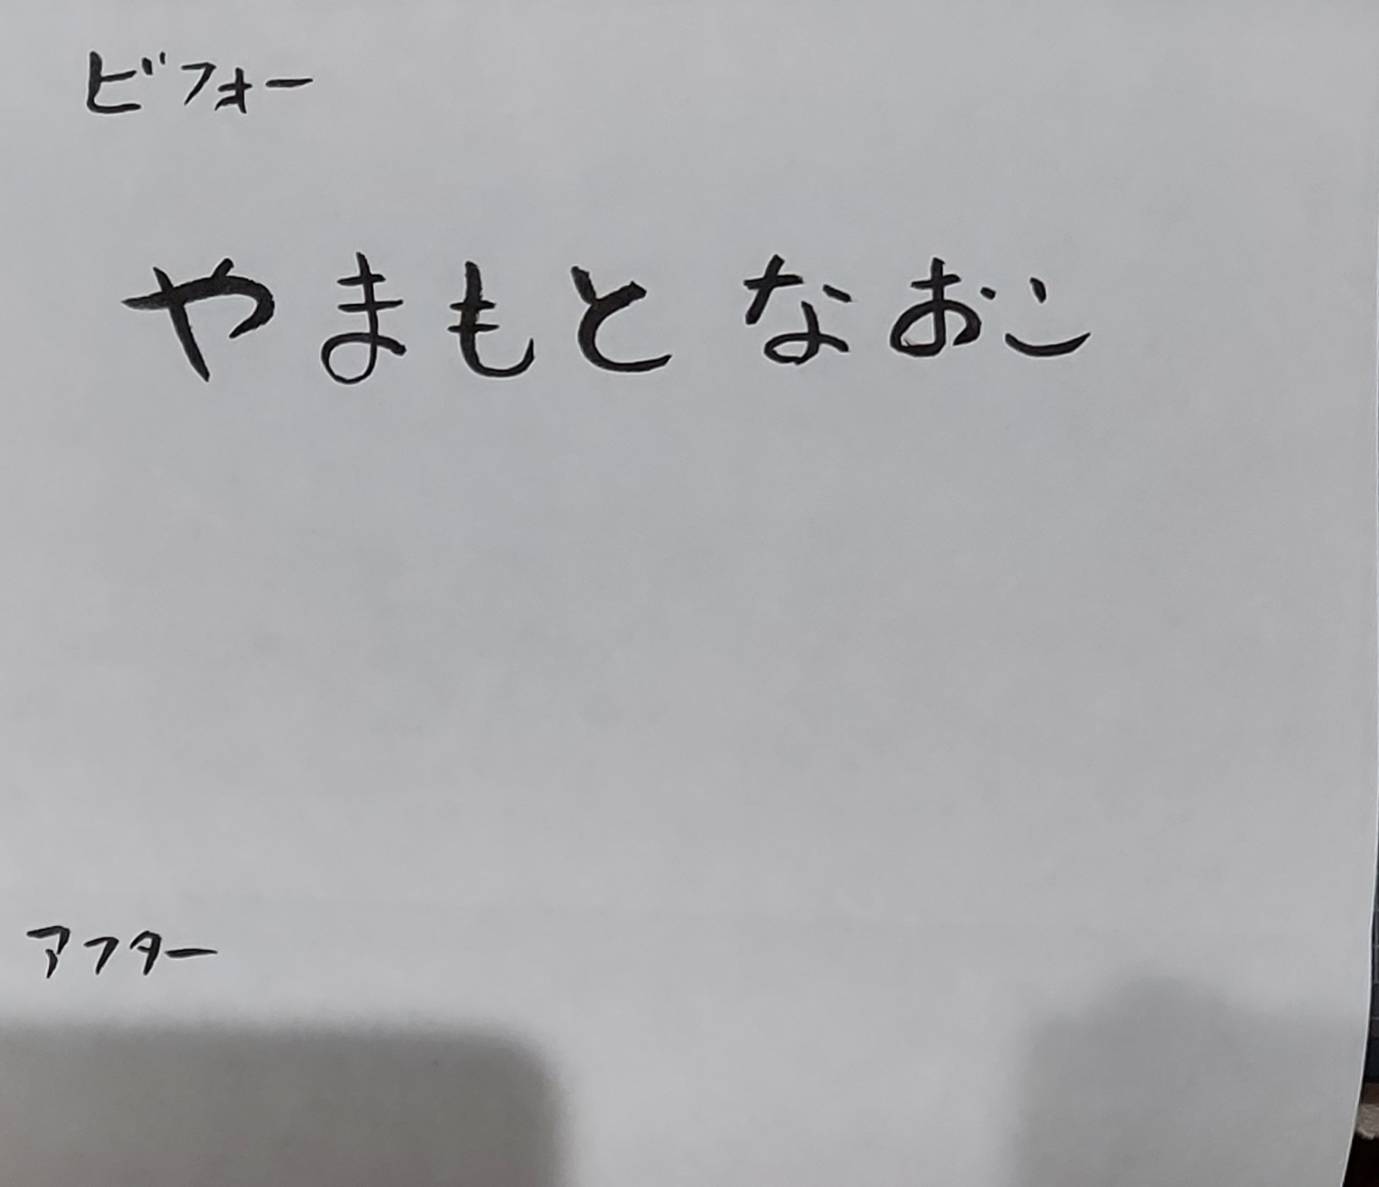 ビフォー
やまもと なおこ
アフター